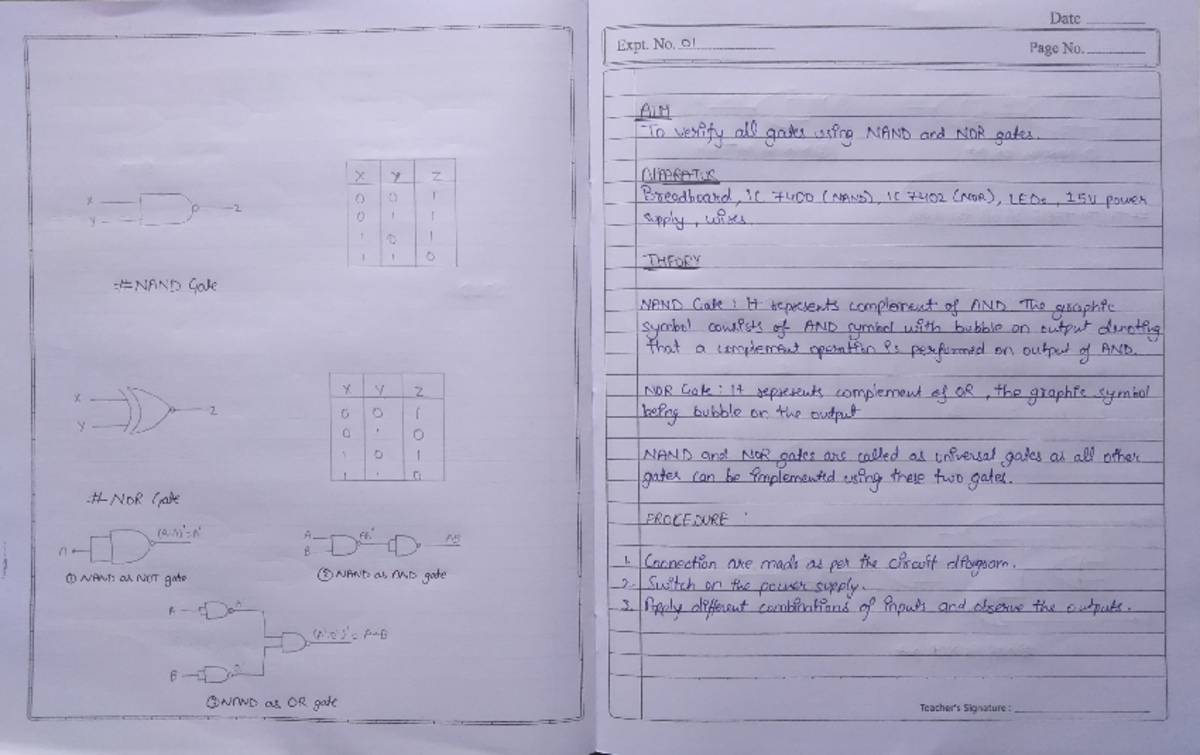 X Y Z
0 0 1
0 1 1
1 0 1
1 1 0
X
Y
Z
# NAND Gate
X Y Z
0 0 1
0 1 0
1 0 1
1 1 0
X
Y
Z
# NOR Gate
A
(A.A)'=A'
① NAND as NOT gate
A
B
AB
② NAND as AND gate
A
B
= A+B
③ NAND as OR gate
Date
Expt. No. 01
Page No.
AIM
To verify all gates using NAND and NOR gates.
APPARATUS
Breadboard, IC 7400 (NAND), IC 7402 (NOR), LEDs, 15V power
supply, wires.
THEORY
NAND Gate : It represents complement of AND. The graphic
symbol consists of AND symbol with bubble on output denoting
that a complement operation is performed on output of AND.
NOR Gate : It represents complement of OR, the graphic symbol
being bubble on the output
NAND and NOR gates are called as universal gates as all other
gates can be implemented using these two gates.
PROCEDURE :
1. Connection are made as per the circuit diagram.
2. Switch on the power supply.
3. Apply different combinations of inputs and observe the outputs.
Teacher's Signature :